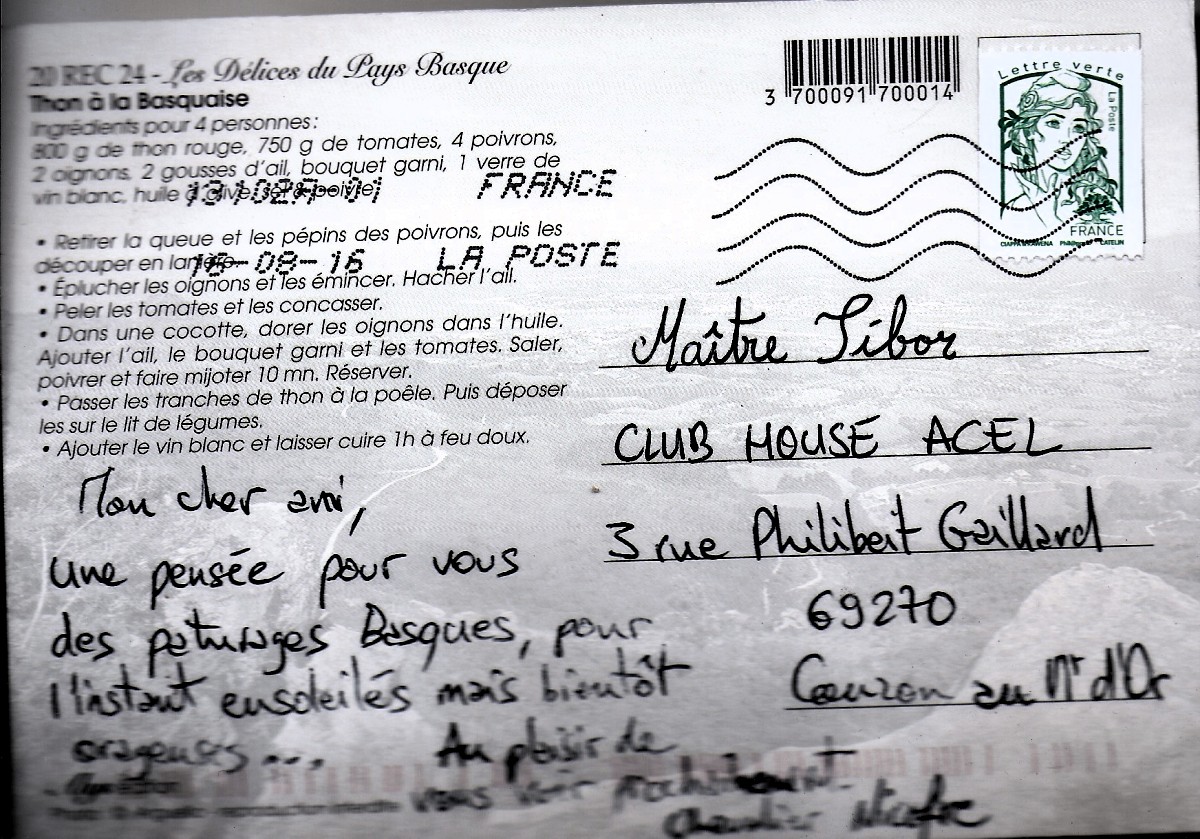 20 REC 24 - Les Délices du Pays Basque
Thon à la Basquaise
Ingrédients pour 4 personnes :
800 g de thon rouge, 750 g de tomates, 4 poivrons,
2 oignons, 2 gousses d'ail, bouquet garni, 1 verre de
vin blanc, huile
• Retirer la queue et les pépins des poivrons, puis les
découper en
• Éplucher les oignons et les émincer. Hacher l'ail.
• Peler les tomates et les concasser.
• Dans une cocotte, dorer les oignons dans l'huile.
Ajouter l'ail, le bouquet garni et les tomates. Saler,
poivrer et faire mijoter 10 mn. Réserver.
• Passer les tranches de thon à la poêle. Puis déposer
les sur le lit de légumes.
• Ajouter le vin blanc et laisser cuire 1h à feu doux.
Mon cher ami,
une pensée pour vous
des paturages Basques, pour
l'instant ensoleilés mais bientôt
orageuses... Au plaisir de
vous voir prochainement.
Chevalier
reproduction interdite
3 700091 700014
Lettre verte
La Poste
FRANCE
FRANCE
-08-16 LA POSTE
Maître Tibor
CLUB HOUSE ACEL
3 rue Philibert Gaillard
69270
Couzon au Mt d'Or